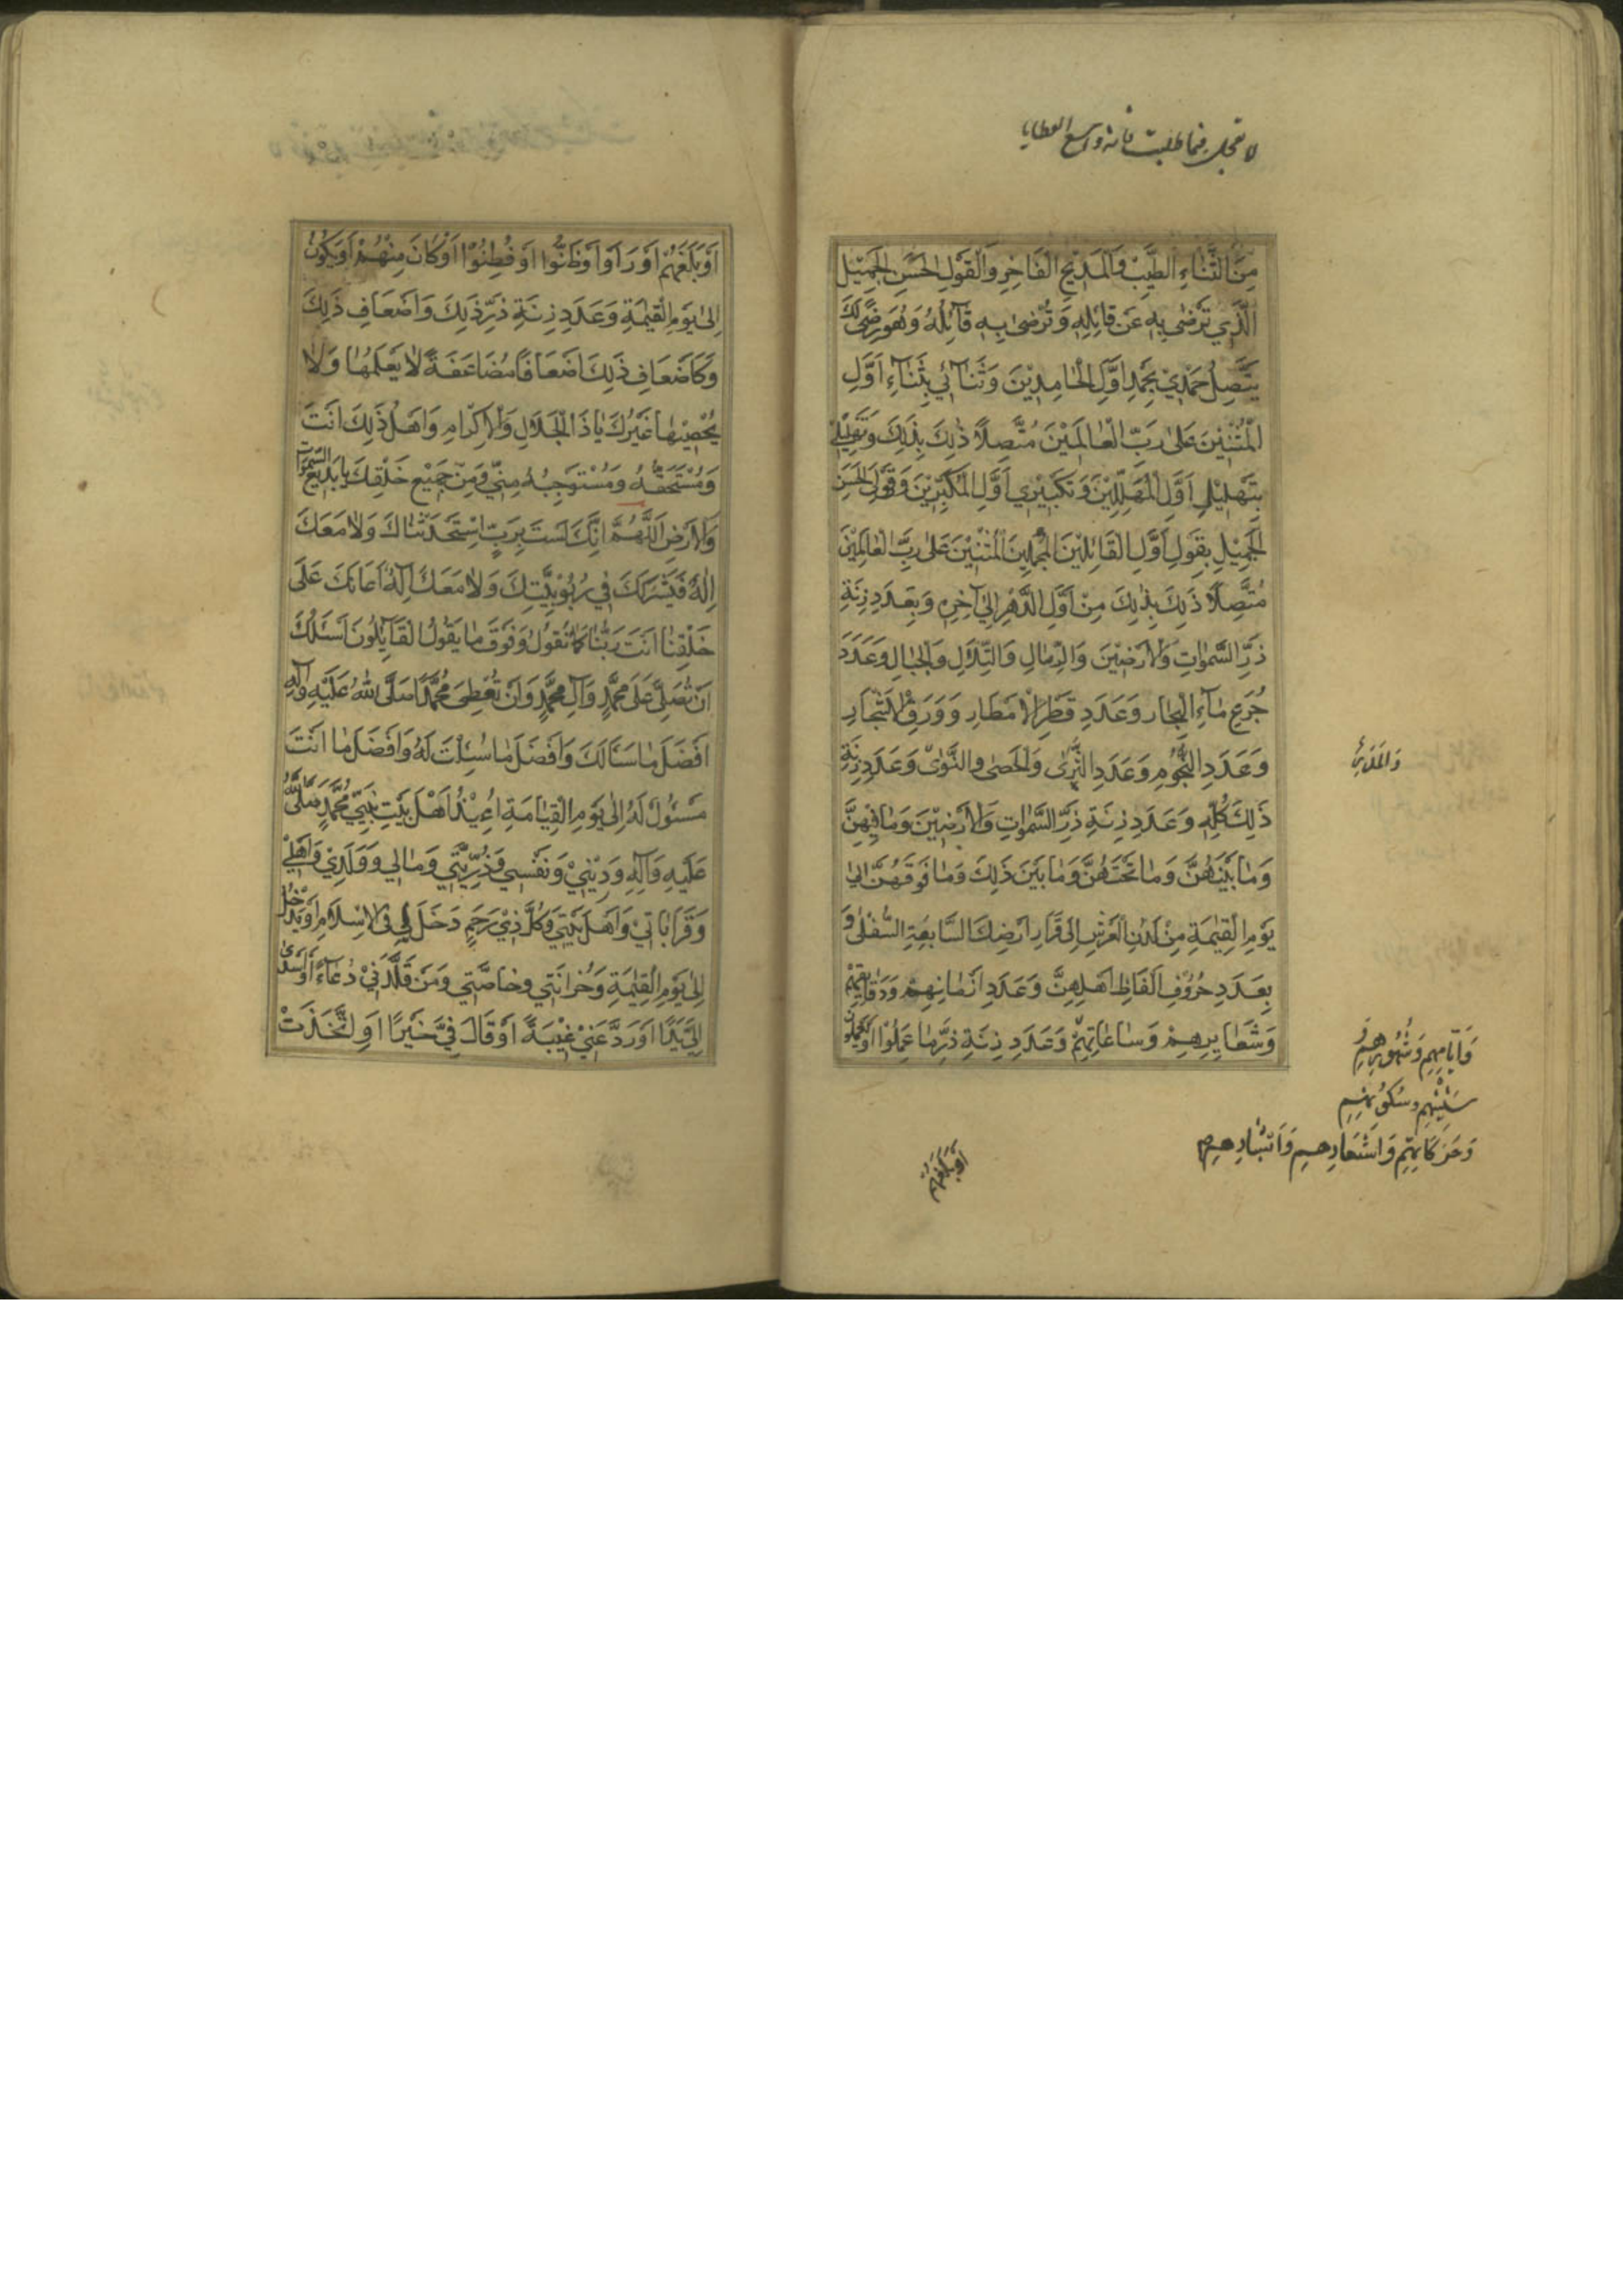 لا تعجل فيما طلبت فانه واسع العطايا
مِنَ الثَّنَاءِ الطَّيِّبِ وَالْمَدِيحِ الْفَاخِرِ وَالْقَوْلِ الْحَسَنِ الْجَمِيْلِ
الَّذِي تَرْضىٰ بِهِ عَنْ قَائِلِهِ وَتُرْضىٰ بِهِ قَآئِلُهُ وَهُوَ رِضًى لَكَ
يَتَّصِلُ حَمْدِيْ بِحَمْدِ اَوَّلِ الْحَامِدِيْنَ وَثَنَآئِي بِثَنَآءِ اَوَّلِ
الْمُثْنِيْنَ عَلىٰ رَبِّ الْعَالَمِيْنَ مُتَّصِلًا ذٰلِكَ بِذٰلِكَ وَتَهْلِيْلِي
بِتَهْلِيْلِ اَوَّلِ الْمُهَلِّلِيْنَ وَتَكْبِيْرِي اَوَّلِ الْمُكَبِّرِيْنَ وَقَوْلِيَ الْحَسَنِ
الْجَمِيْلِ بِقَوْلِ اَوَّلِ الْقَائِلِيْنَ الْمُجْمِلِيْنَ الْمُثْنِيْنَ عَلىٰ رَبِّ الْعَالَمِيْنَ
مُتَّصِلًا ذَلِكَ بِذٰلِكَ مِنْ اَوَّلِ الدَّهْرِ اِلىٰ آخِرِهِ وَبِعَدَدِ زِنَةِ
ذَرِّ السَّمٰوَاتِ وَالْاَرَضِيْنَ وَالرِّمَالِ وَالتِّلَالِ وَالْجِبَالِ وَعَدَدَ
جُرَعِ مَآءِ الْبِحَارِ وَعَدَدِ قَطْرِ الْاَمْطَارِ وَوَرَقِ الْاَشْجَارِ
وَعَدَدِ النُّجُومِ وَعَدَدِ الثَّرىٰ وَالْحَصىٰ وَالنَّوىٰ وَعَدَدِ زِنَةِ
وَالْمَدَرِ
ذَلِكَ كُلِّهِ وَعَدَدِ زِنَةِ ذَرِّ السَّمٰوَاتِ وَالْاَرَضِيْنَ وَمَا فِيْهِنَّ
وَمَا بَيْنَهُنَّ وَمَا تَحْتَهُنَّ وَمَا بَيْنَ ذَلِكَ وَمَا فَوْقَهُنَّ اِلىٰ
يَوْمِ الْقِيٰمَةِ مِنْ لَدُنِ الْعَرْشِ اِلىٰ قَرَارِ اَرْضِكَ السَّابِعَةِ السُّفْلىٰ وَ
بِعَدَدِ حُرُوْفِ اَلْفَاظِ اَهْلِهِنَّ وَعَدَدِ اَزْمَانِهِمْ وَدَقَايِقِهِمْ
وَشَعَايِرِهِمْ وَسَاعَاتِهِمْ وَعَدَدِ زِنَةِ ذَرِّ مَا عَمِلُوْا اَوْ يَعْمَلُوْنَ
وَاَيَّامِهِمْ وَشُهُوْرِهِمْ وَ
سِنِيْنِهِمْ وَسُكُوْنِهِمْ
وَحَرَكَاتِهِمْ وَاَشْعَارِهِمْ وَاَبْشَارِهِمْ
اَوْ بَلَغَهُمْ
اَوْ بَلَغَهُمْ اَوْ رَاَوْا اَوْ ظَنُّوْا اَوْ فَطِنُوْا اَوْ كَانَ مِنْهُمْ اَوْ يَكُوْنُ
اِلىٰ يَوْمِ الْقِيٰمَةِ وَعَدَدِ زِنَةِ ذَرِّ ذَلِكَ وَاَضْعَافِ ذَلِكَ
وَكَاَضْعَافِ ذَلِكَ اَضْعَافًا مُضَاعَفَةً لَا يَعْلَمُهَا وَلَا
يُحْصِيْهَا غَيْرُكَ يَا ذَا الْجَلَالِ وَالْاِكْرَامِ وَاَهْلُ ذَلِكَ اَنْتَ
وَمُسْتَحِقُّهُ وَمُسْتَوْجِبُهُ مِنِّي وَمِنْ جَمِيْعِ خَلْقِكَ يَا بَدِيْعَ السَّمٰوَاتِ
وَالْاَرْضِ اَللّٰهُمَّ اِنَّكَ لَسْتَ بِرَبٍّ اِسْتَحْدَثْنَاكَ وَلَا مَعَكَ
اِلٰهٌ فَيَشْرَكَكَ فِي رُبُوْبِيَّتِكَ وَلَا مَعَكَ اِلٰهٌ اَعَانَكَ عَلَى
خَلْقِنَا اَنْتَ رَبُّنَا كَمَا نَقُوْلُ وَفَوْقَ مَا يَقُوْلُ الْقَآئِلُوْنَ اَسْئَلُكَ
اَنْ تُصَلِّيَ عَلىٰ مُحَمَّدٍ وَآلِ مُحَمَّدٍ وَاَنْ تُعْطِيَ مُحَمَّدًا صَلَّى اللّٰهُ عَلَيْهِ وَآلِهِ
اَفْضَلَ مَا سَئَالَكَ وَاَفْضَلَ مَا سُئِلْتَ لَهُ وَاَفْضَلَ مَا اَنْتَ
مَسْئُوْلٌ لَهُ اِلىٰ يَوْمِ الْقِيَامَةِ اُعِيْذُ اَهْلَ بَيْتِ نَبِيِّي مُحَمَّدٍ صَلَّى اللّٰهُ
عَلَيْهِ وَآلِهِ وَدِيْنِيْ وَنَفْسِي وَذُرِّيَّتِي وَمَالِي وَوَلَدِيْ وَاَهْلِيْ
وَقَرَابَاتِيْ وَاَهْلَ بَيْتِي وَكُلَّ ذِيْ رَحِمٍ دَخَلَ لِي فِى الْاِسْلَامِ اَوْ يَدْخُلُ
اِلىٰ يَوْمِ الْقِيٰمَةِ وَحُزَانَتِي وَخَاصَّتِي وَمَنْ قَلَّدَنِيْ دُعَآءً اَوْ اَسْدىٰ
اِلَيَّ يَدًا اَوْ رَدَّ عَنِّيْ غِيْبَةً اَوْ قَالَ فِيَّ خَيْرًا اَوِ اتَّخَذْتُ